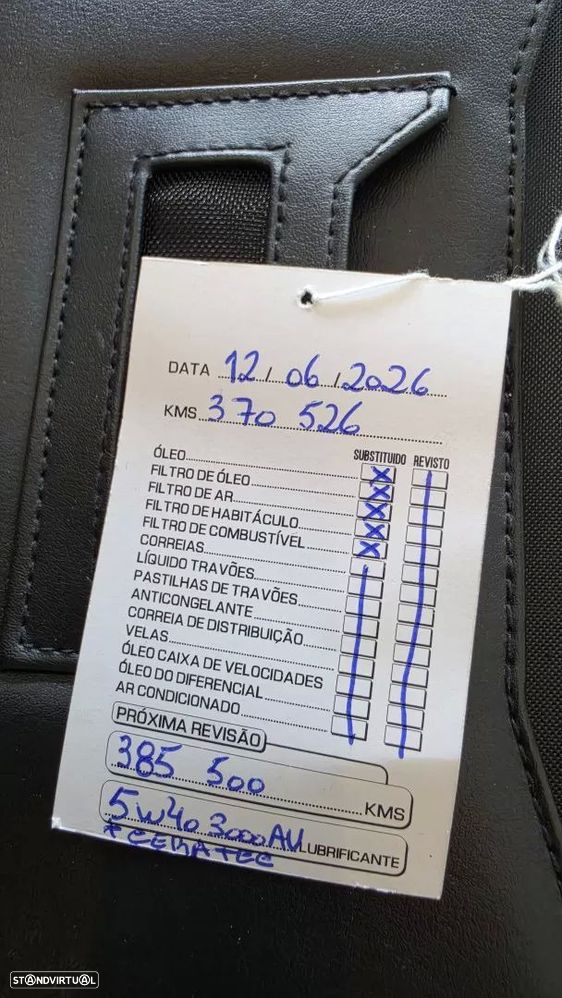 DATA 12/06/2026
KMS 370 526
SUBSTITUIDO REVISTO
ÓLEO
FILTRO DE ÓLEO
FILTRO DE AR
FILTRO DE HABITÁCULO
FILTRO DE COMBUSTÍVEL
CORREIAS
LÍQUIDO TRAVÕES
PASTILHAS DE TRAVÕES
ANTICONGELANTE
CORREIA DE DISTRIBUIÇÃO
VELAS
ÓLEO CAIXA DE VELOCIDADES
ÓLEO DO DIFERENCIAL
AR CONDICIONADO
PRÓXIMA REVISÃO
385 500 KMS
5W40 3000AV LUBRIFICANTE
+ CERATEC
STANDVIRTUAL